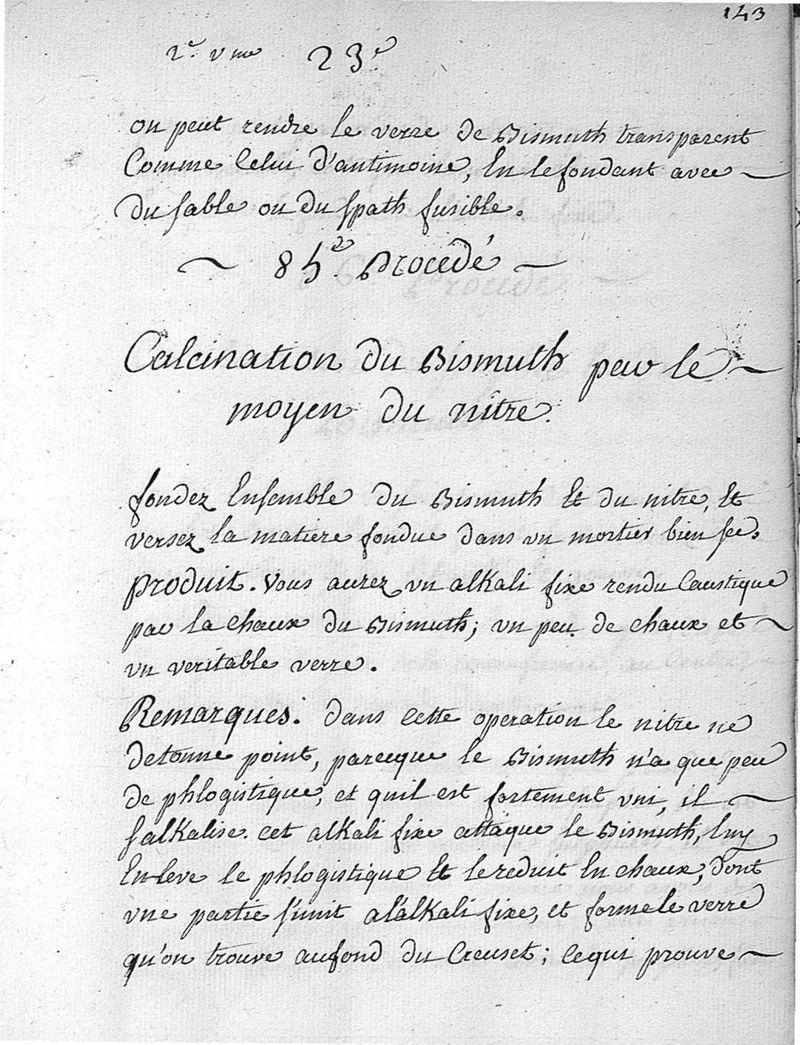 143
2.e vme 23.e
on peut rendre le verre de Bismuth transparent
Comme Celui d'antimoine, En le fondant avec
du sable ou du spath fusible.
~ 85.e Procédé ~
Calcination du Bismuth par le
moyen du nitre.
fondez Ensemble du Bismuth Et du nitre, Et
versez la matiere fondue dans un mortier bien sec.
produit. Vous aurez un alkali fixe rendu Caustique
par la chaux du Bismuth; un peu de chaux et
un veritable verre.
Remarques. dans cette operation le nitre ne
detonne point, parceque le Bismuth n'a que peu
de phlogistique, et quil est fortement uni, il
s'alkalise. cet alkali fixe attaque le Bismuth, luy
Enleve le phlogistique Et le reduit En chaux, dont
une partie s'unit a l'alkali fixe, et forme le verre
qu'on trouve au fond du Creuset; ce qui prouve